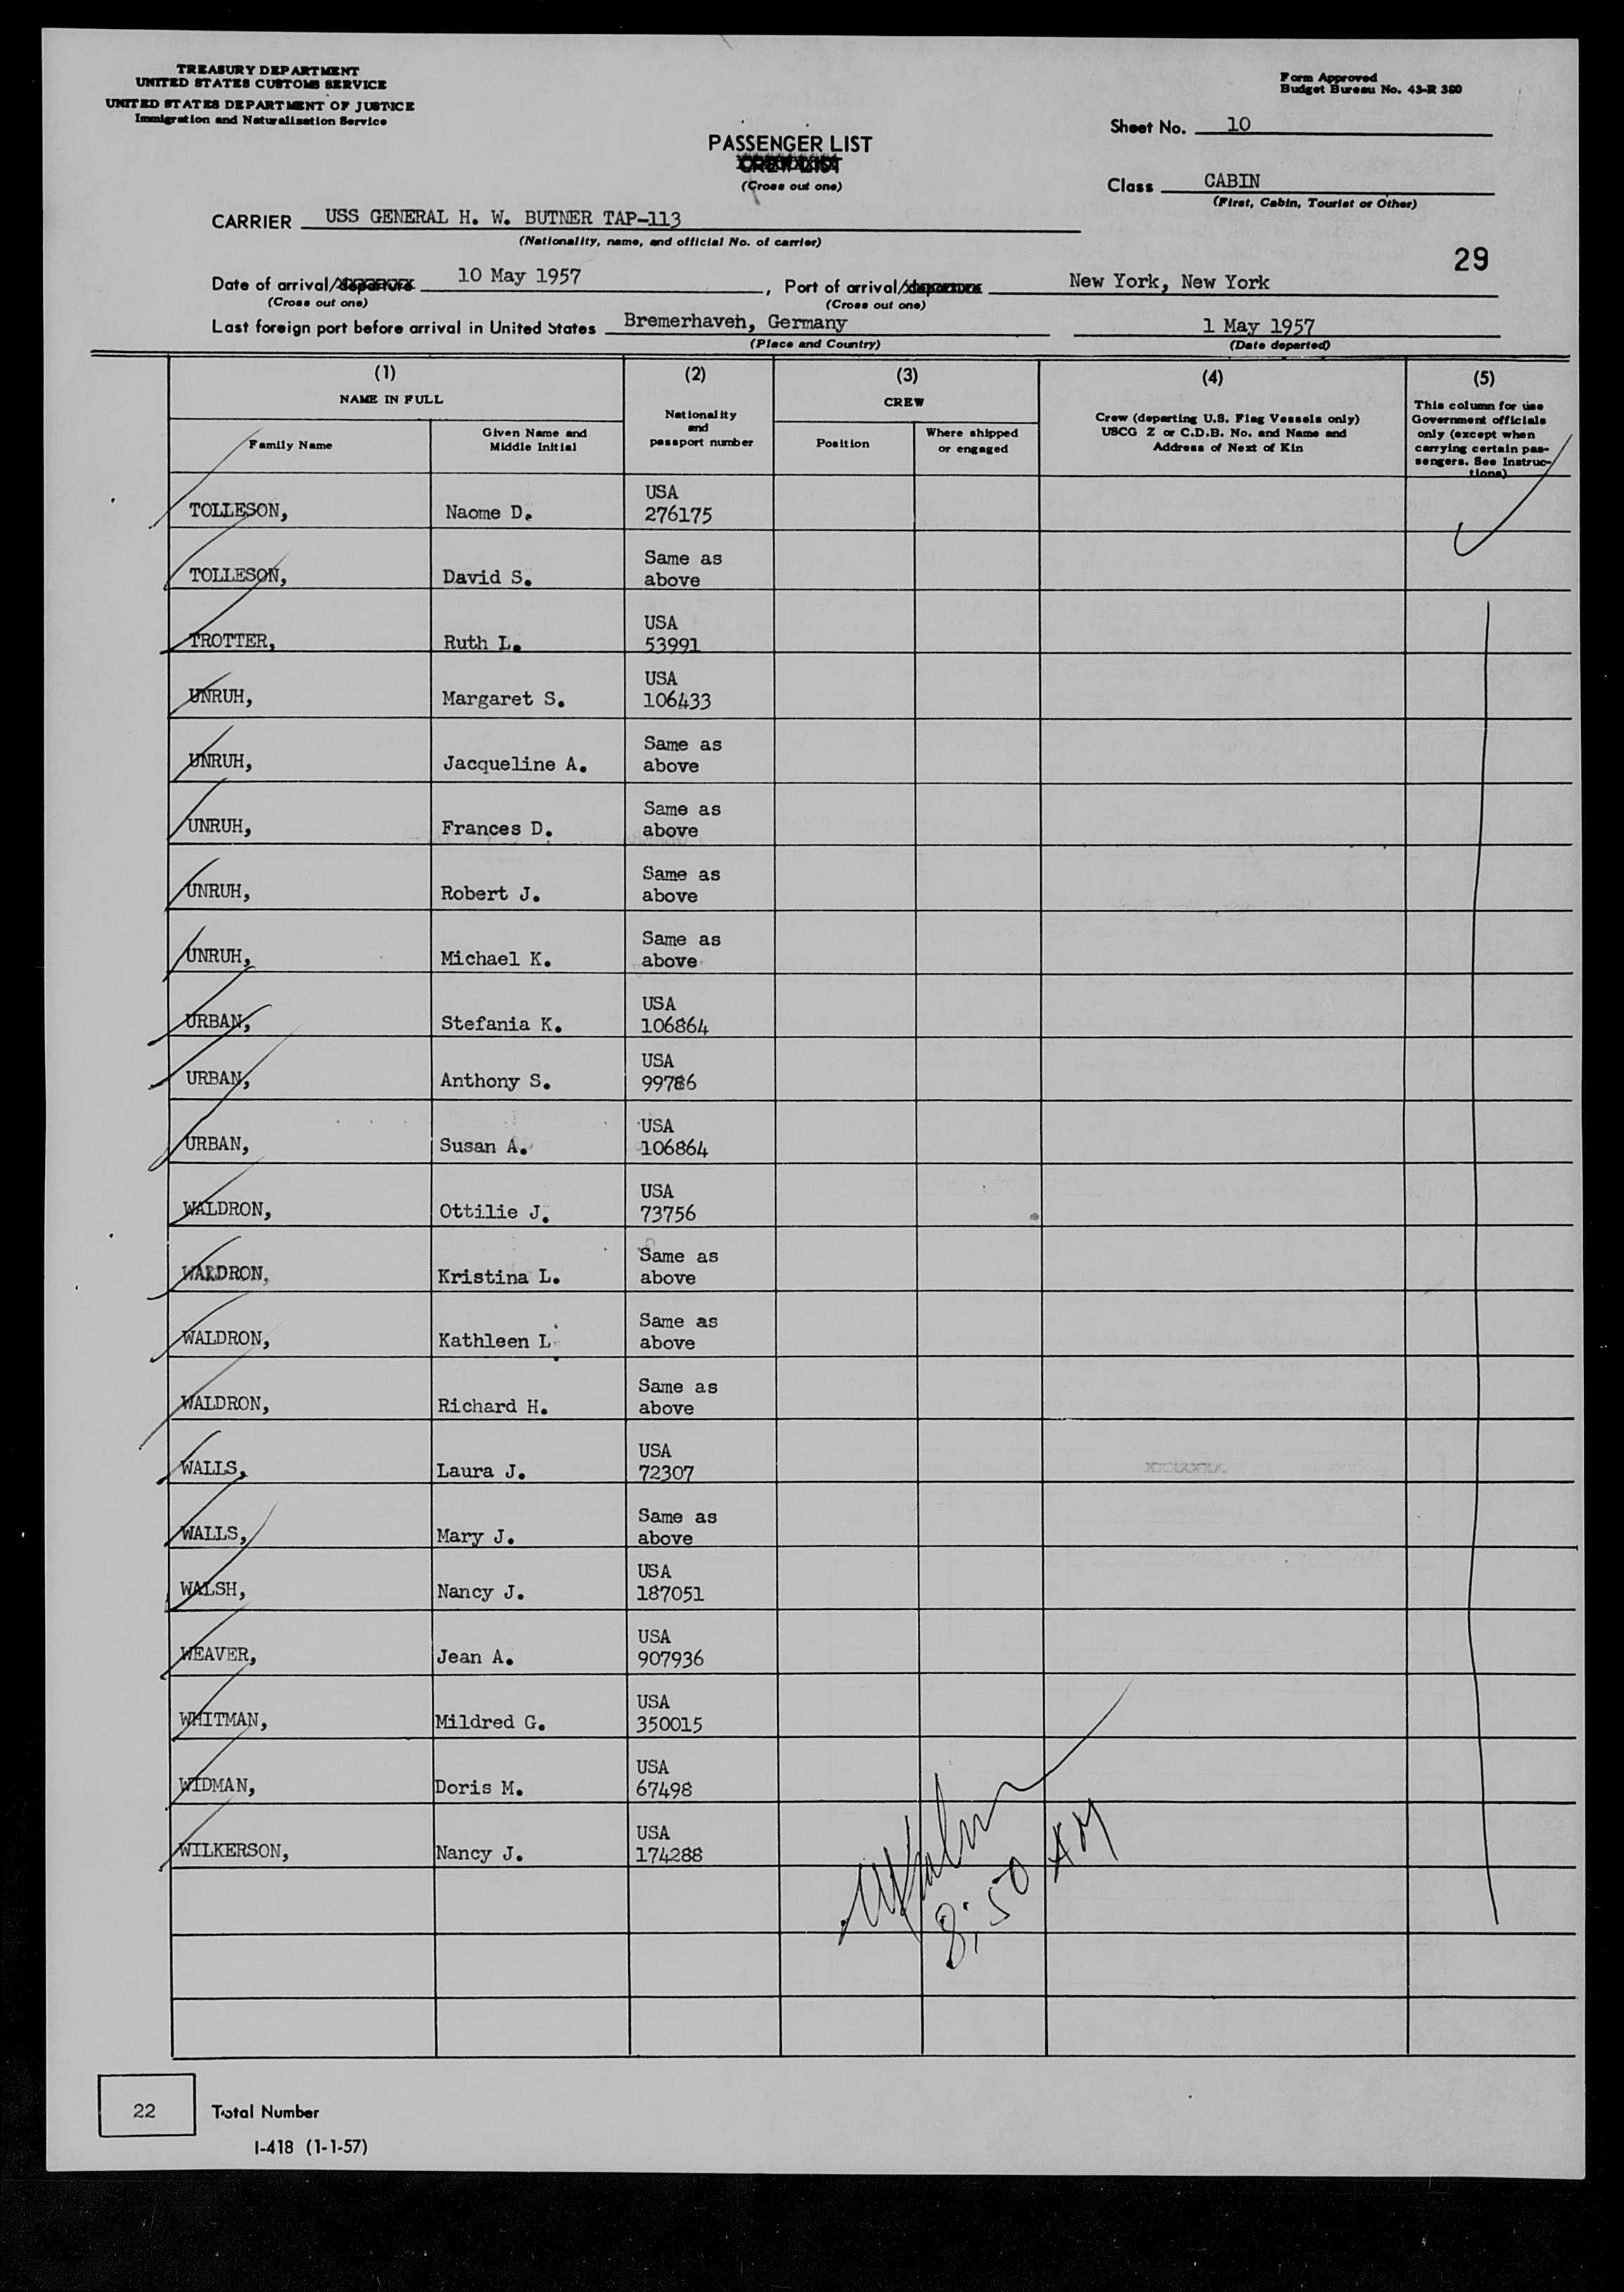 TREASURY DEPARTMENT
UNITED STATES CUSTOMS SERVICE
UNITED STATES DEPARTMENT OF JUSTICE
Immigration and Naturalization Service
Form Approved
Budget Bureau No. 43-R 380
Sheet No. 10
PASSENGER LIST
CREW LIST
(Cross out one)
Class CABIN
(First, Cabin, Tourist or Other)
CARRIER USS GENERAL H. W. BUTNER TAP-113
(Nationality, name, and official No. of carrier)
29
Date of arrival/departure 10 May 1957, Port of arrival/departure New York, New York
(Cross out one) (Cross out one)
Last foreign port before arrival in United States Bremerhaven, Germany 1 May 1957
(Place and Country) (Date departed)
(1) (2) (3) (4) (5)
NAME IN FULL
Family Name
Given Name and
Middle Initial
Nationality
and
passport number
CREW
Position
Where shipped
or engaged
Crew (departing U.S. Flag Vessels only)
USCG Z or C.D.B. No. and Name and
Address of Next of Kin
This column for use
Government officials
only (except when
carrying certain pas-
sengers. See Instruc-
tions)
USA
TOLLESON, Naome D. 276175
Same as
TOLLESON, David S. above
USA
TROTTER, Ruth L. 53991
USA
UNRUH, Margaret S. 106433
Same as
UNRUH, Jacqueline A. above
Same as
UNRUH, Frances D. above
Same as
UNRUH, Robert J. above
Same as
UNRUH, Michael K. above
USA
URBAN, Stefania K. 106864
USA
URBAN, Anthony S. 99786
USA
URBAN, Susan A. 106864
USA
WALDRON, Ottilie J. 73756
Same as
WALDRON, Kristina L. above
Same as
WALDRON, Kathleen L. above
Same as
WALDRON, Richard H. above
USA
WALLS, Laura J. 72307
Same as
WALLS, Mary J. above
USA
WALSH, Nancy J. 187051
USA
WEAVER, Jean A. 907936
USA
WHITMAN, Mildred G. 350015
USA
WIDMAN, Doris M. 67498
USA
WILKERSON, Nancy J. 174288
8:50 AM
22 Total Number
I-418 (1-1-57)